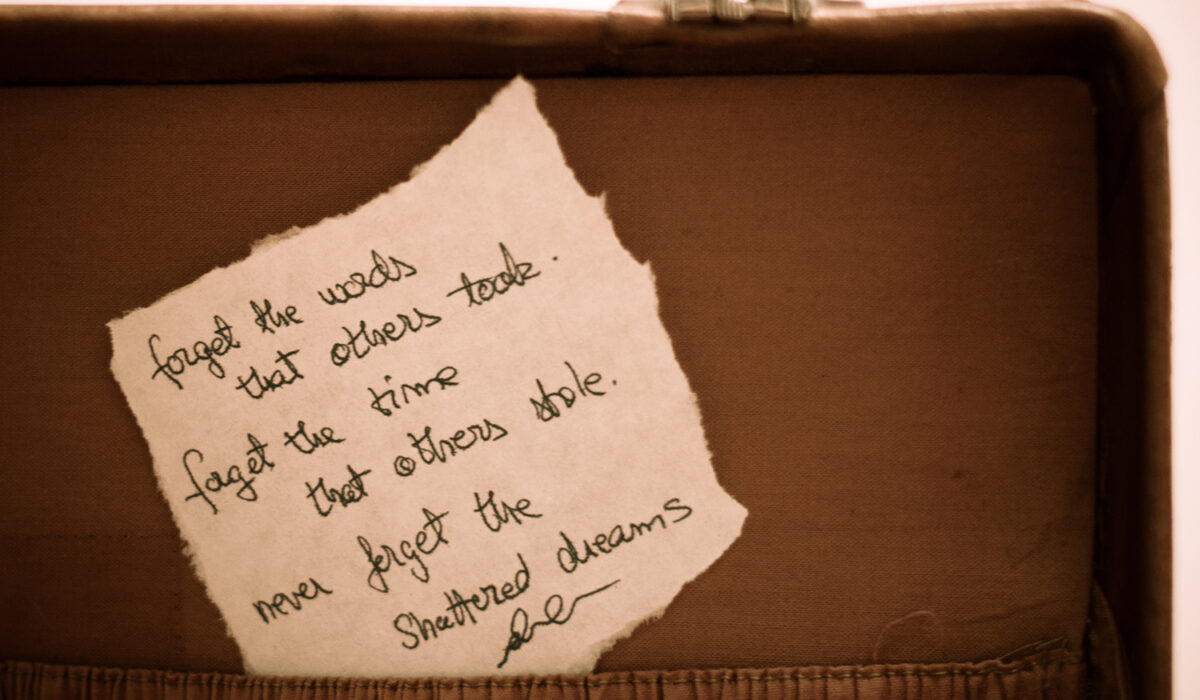 forget the words
that others took.
forget the time
that others stole.
never forget the
shattered dreams